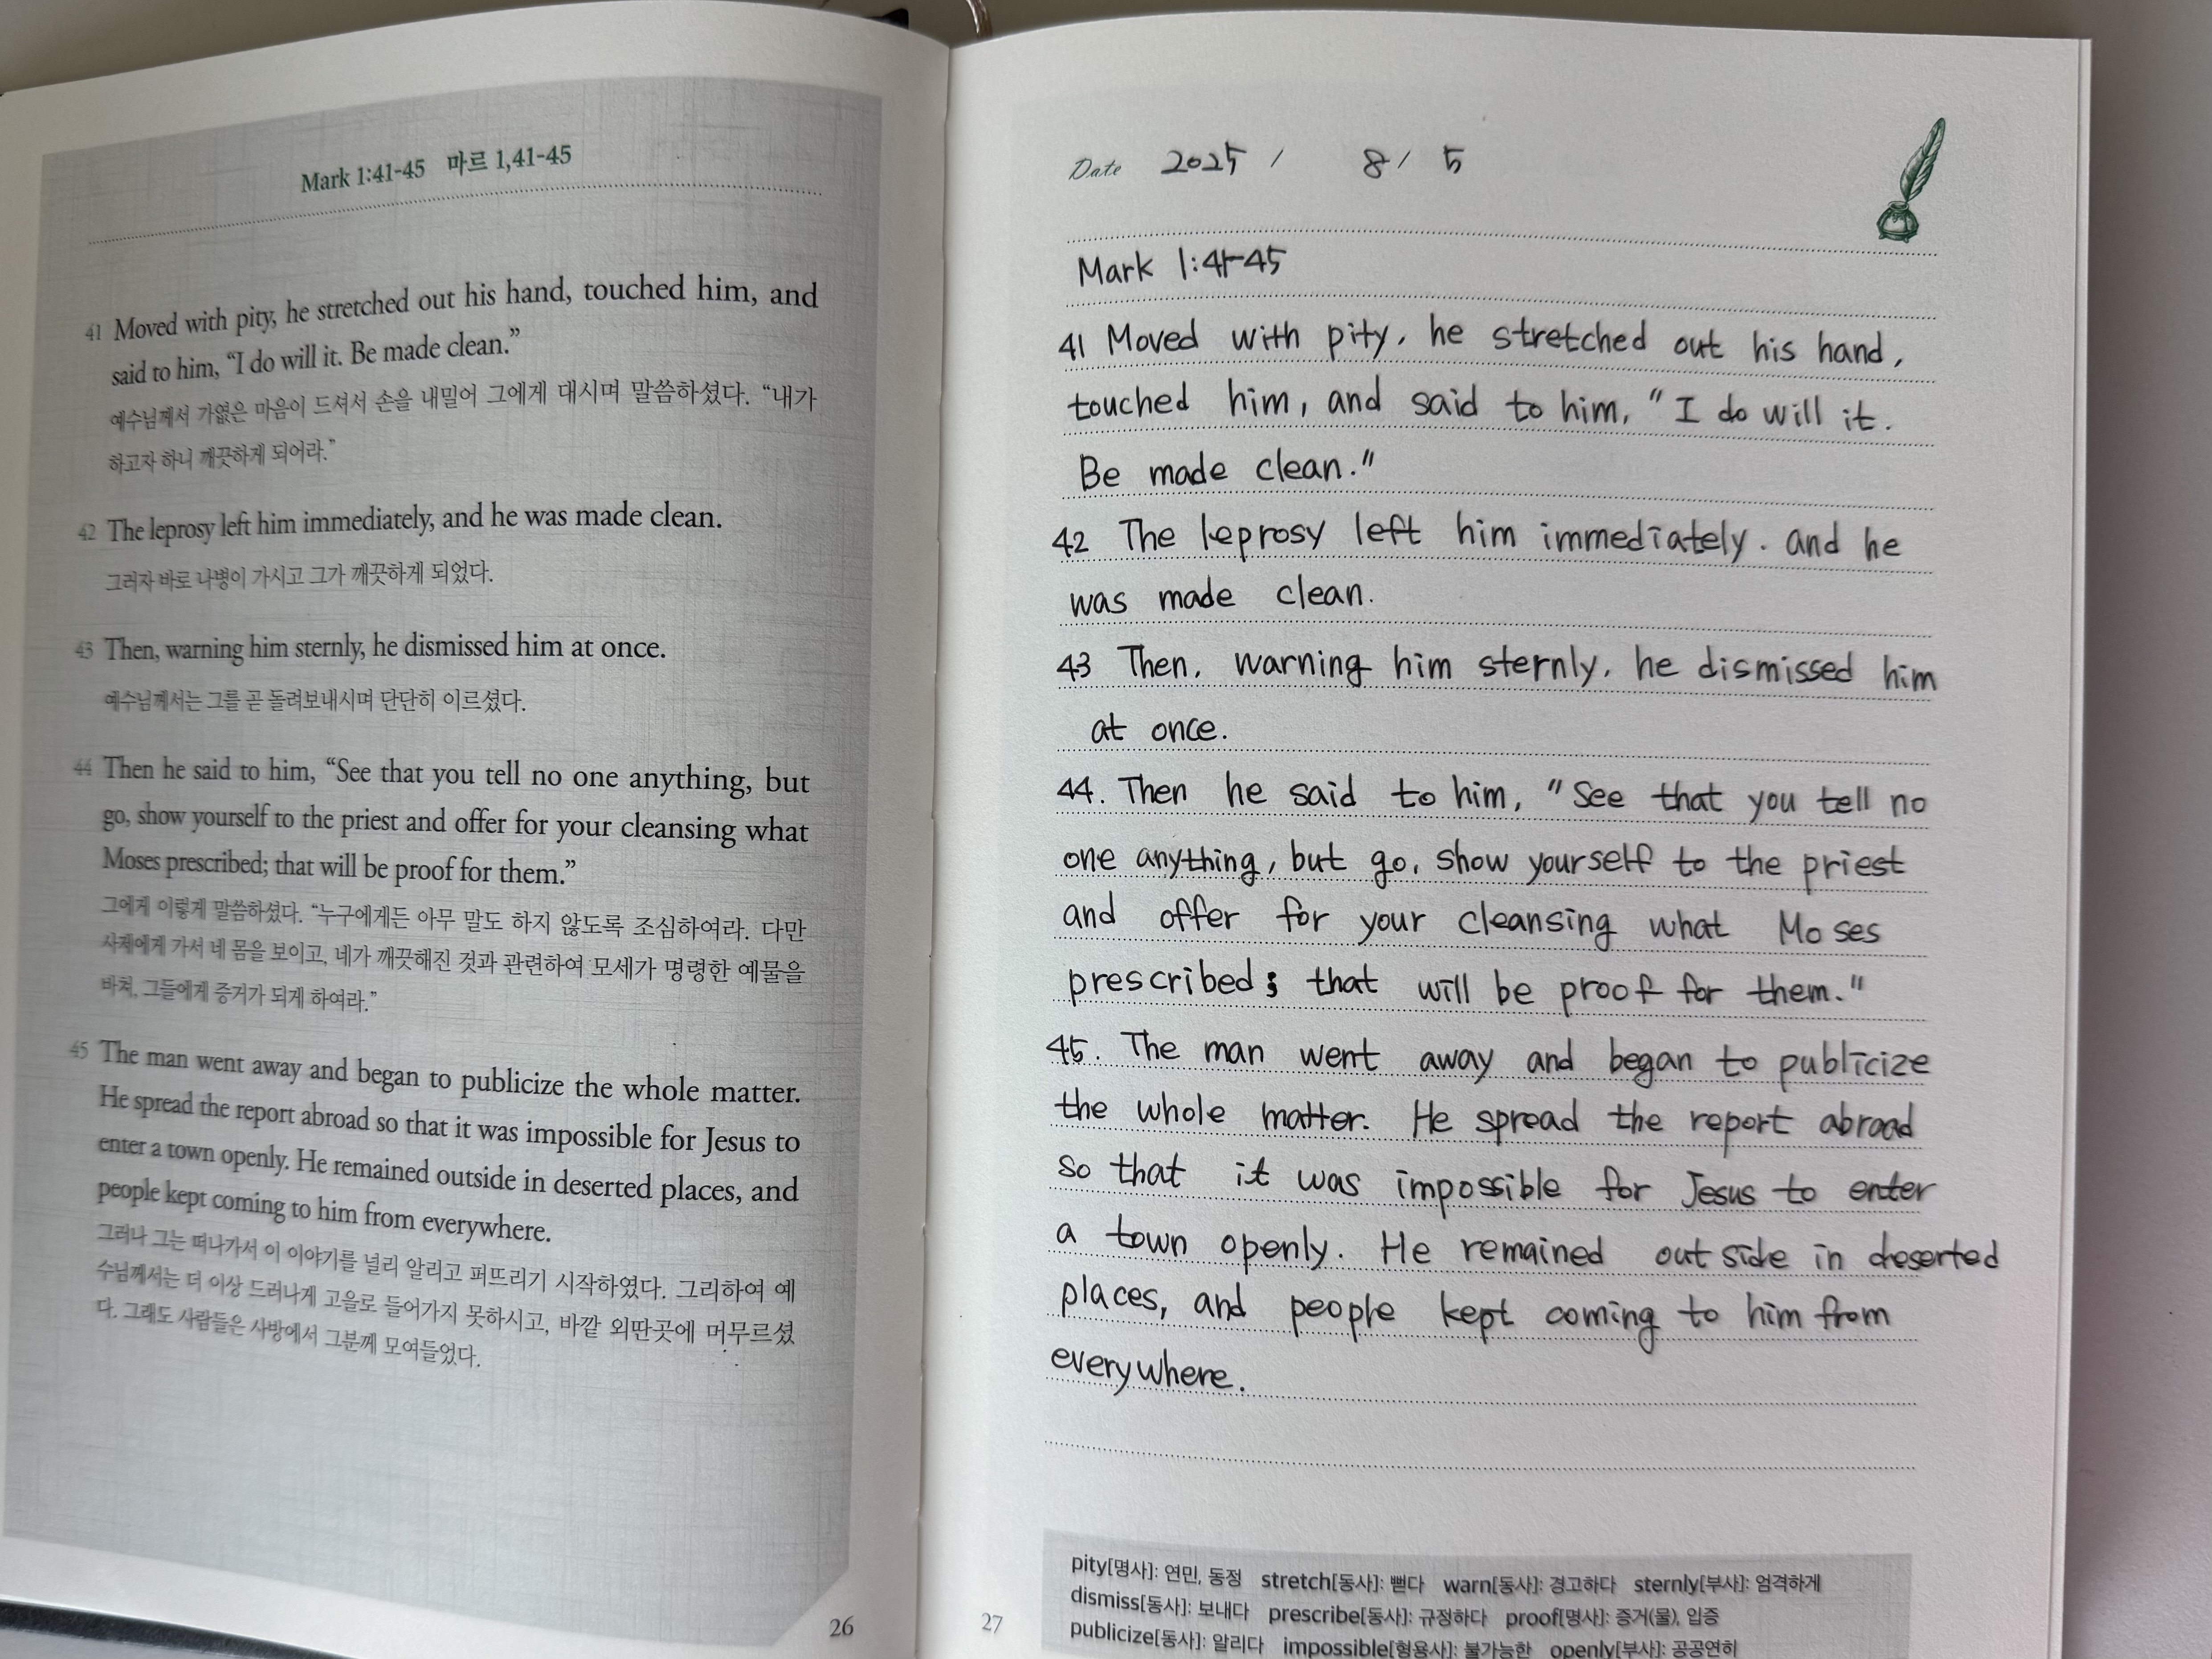 Mark 1:41-45 마르 1,41-45
41 Moved with pity, he stretched out his hand, touched him, and
said to him, “I do will it. Be made clean.”
예수님께서 가엾은 마음이 드셔서 손을 내밀어 그에게 대시며 말씀하셨다. “내가
하고자 하니 깨끗하게 되어라.”
42 The leprosy left him immediately, and he was made clean.
그러자 바로 나병이 가시고 그가 깨끗하게 되었다.
43 Then, warning him sternly, he dismissed him at once.
예수님께서는 그를 곧 돌려보내시며 단단히 이르셨다.
44 Then he said to him, “See that you tell no one anything, but
go, show yourself to the priest and offer for your cleansing what
Moses prescribed; that will be proof for them.”
그에게 이렇게 말씀하셨다. “누구에게든 아무 말도 하지 않도록 조심하여라. 다만
사제에게 가서 네 몸을 보이고, 네가 깨끗해진 것과 관련하여 모세가 명령한 예물을
바쳐, 그들에게 증거가 되게 하여라.”
45 The man went away and began to publicize the whole matter.
He spread the report abroad so that it was impossible for Jesus to
enter a town openly. He remained outside in deserted places, and
people kept coming to him from everywhere.
그러나 그는 떠나가서 이 이야기를 널리 알리고 퍼뜨리기 시작하였다. 그리하여 예
수님께서는 더 이상 드러나게 고을로 들어가지 못하시고, 바깥 외딴곳에 머무르셨
다. 그래도 사람들은 사방에서 그분께 모여들었다.
26
Date 2025 / 8 / 5
Mark 1:41-45
41 Moved with pity, he stretched out his hand,
touched him, and said to him, "I do will it.
Be made clean."
42 The leprosy left him immediately. and he
was made clean.
43 Then, warning him sternly, he dismissed him
at once.
44. Then he said to him, "See that you tell no
one anything, but go, show yourself to the priest
and offer for your cleansing what Moses
prescribed; that will be proof for them."
45. The man went away and began to publicize
the whole matter. He spread the report abroad
so that it was impossible for Jesus to enter
a town openly. He remained outside in deserted
places, and people kept coming to him from
everywhere.
pity[명사]: 연민, 동정 stretch[동사]: 뻗다 warn[동사]: 경고하다 sternly[부사]: 엄격하게
dismiss[동사]: 보내다 prescribe[동사]: 규정하다 proof[명사]: 증거(물), 입증
publicize[동사]: 알리다 impossible[형용사]: 불가능한 openly[부사]: 공공연히
27